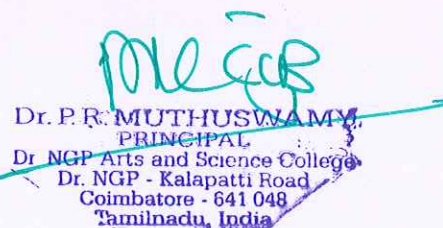 Dr. P. R. MUTHUSWAMY,
PRINCIPAL
Dr NGP Arts and Science College
Dr. NGP - Kalapatti Road
Coimbatore - 641 048
Tamilnadu, India